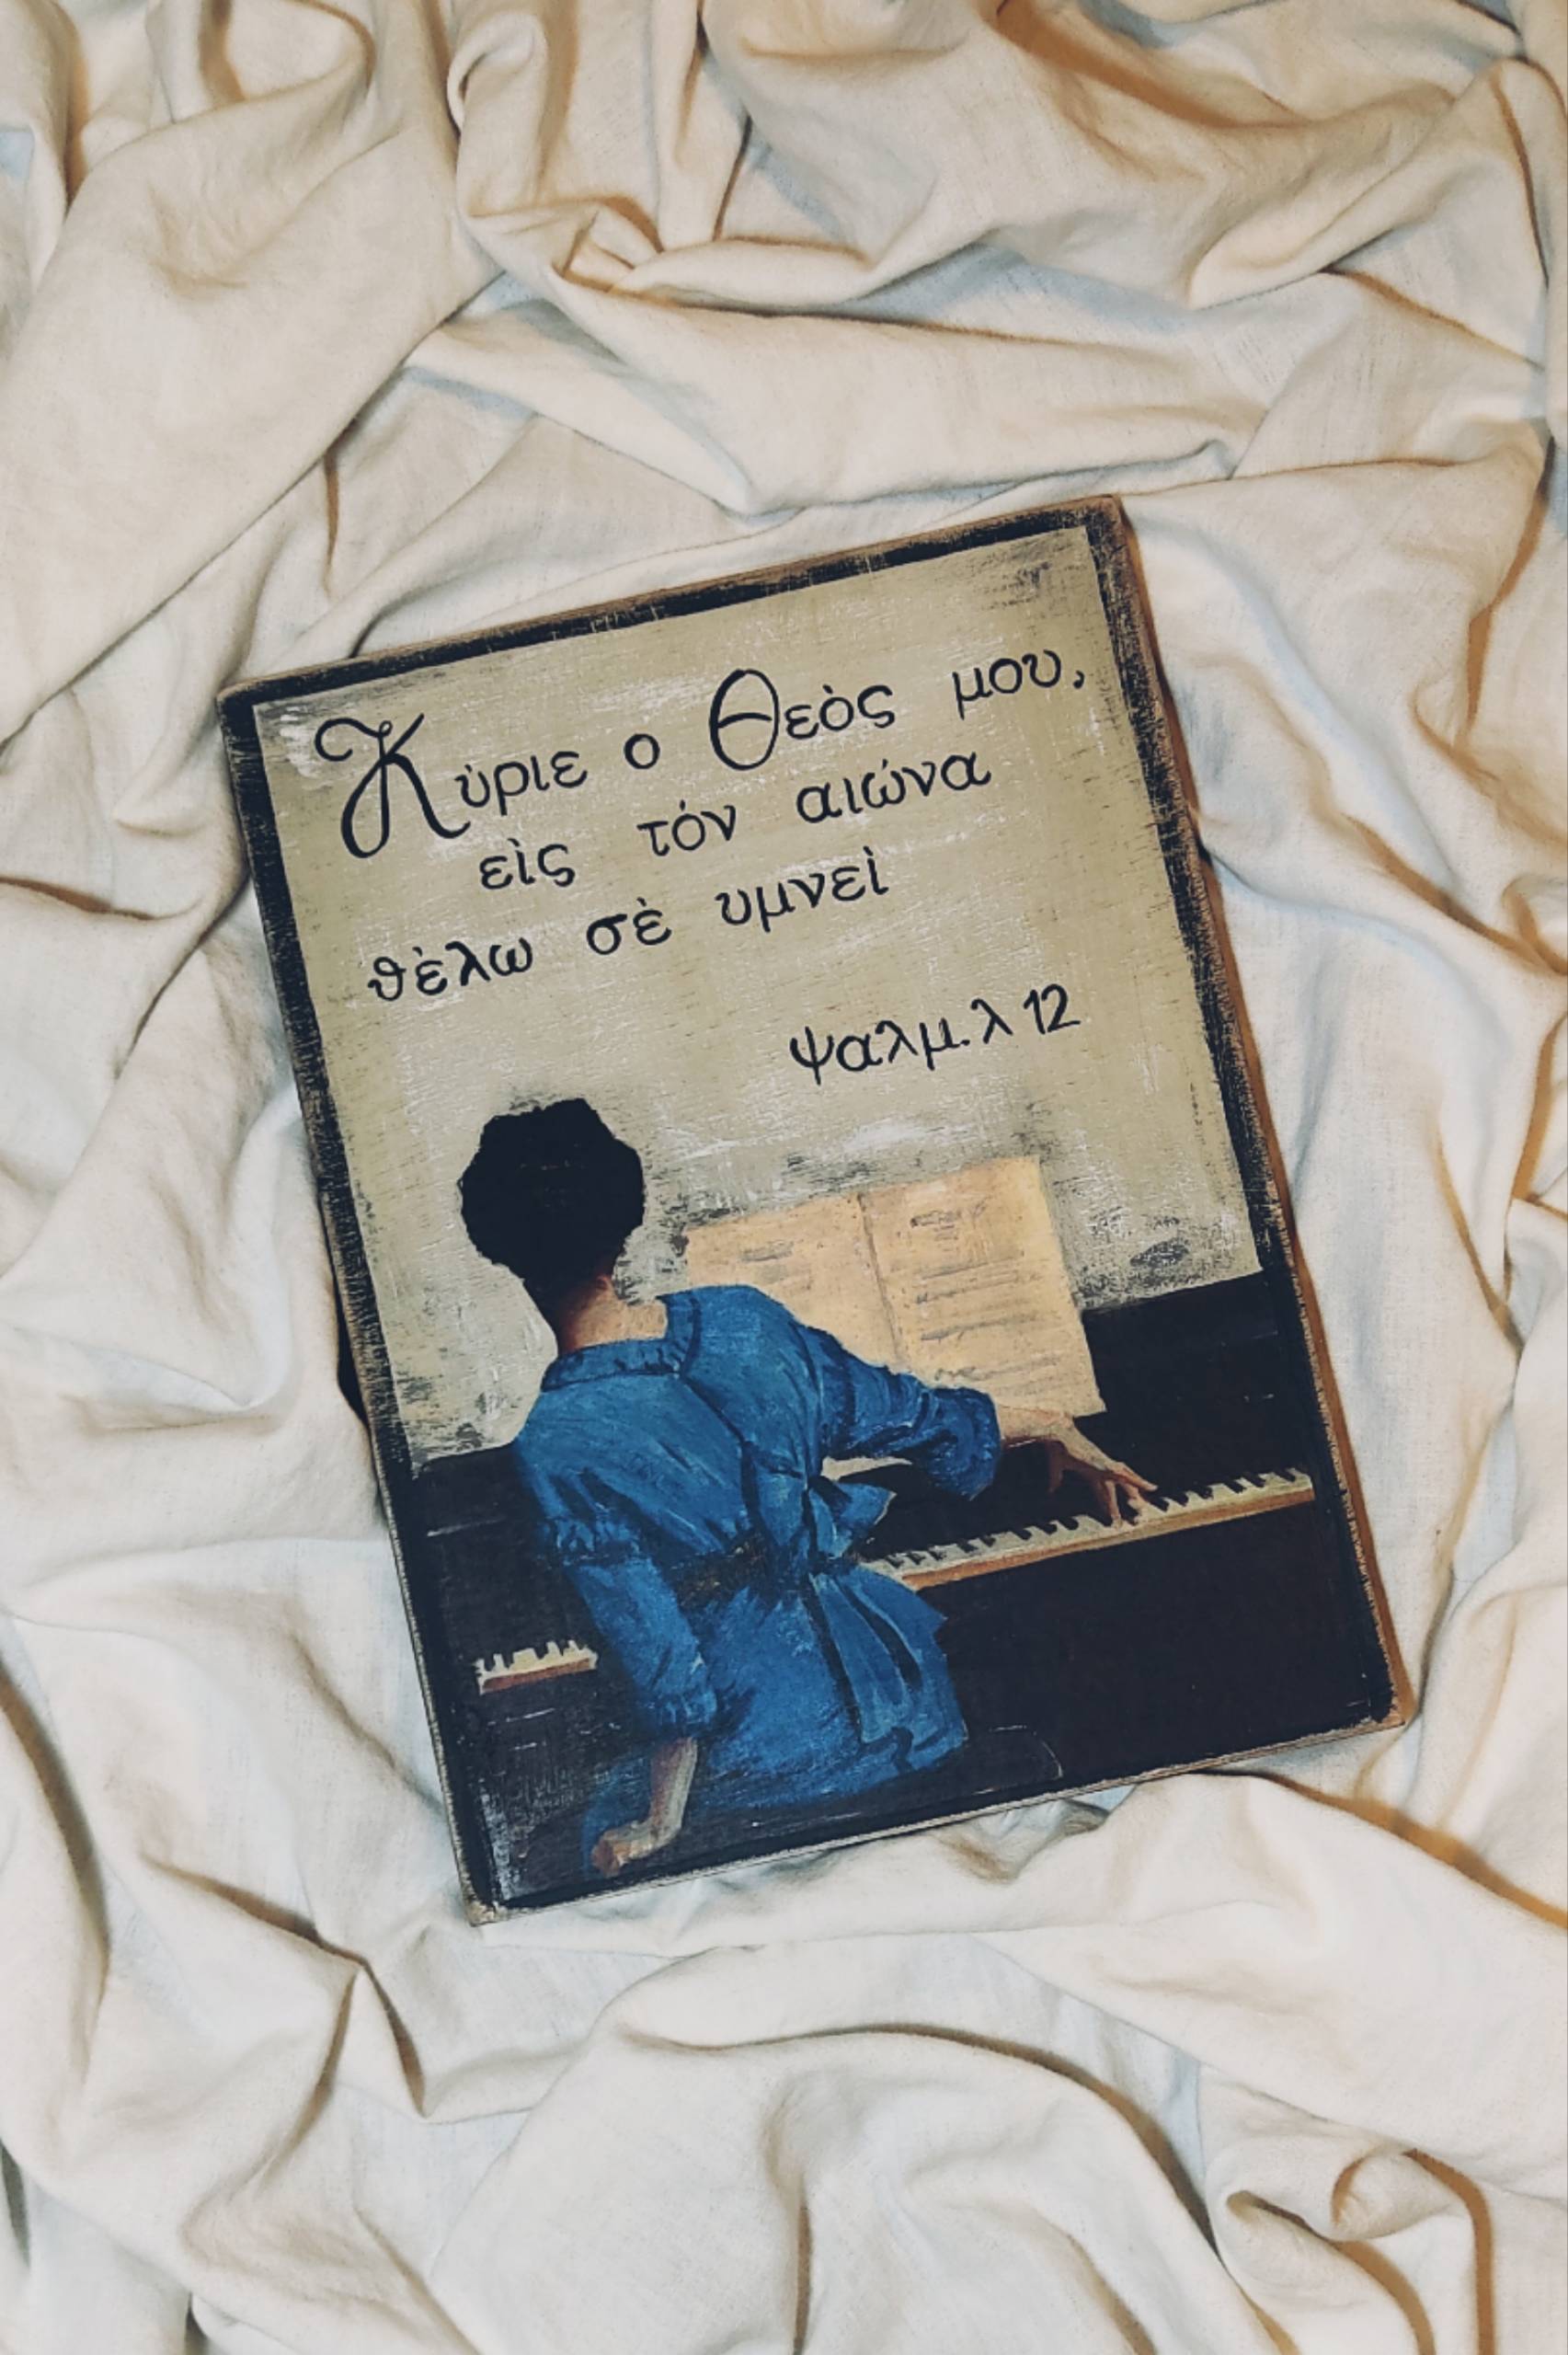 Κὐριε ο Θεὸς μου,
εὶς τόν αιώνα
θὲλω σὲ υμνεὶ
ψαλμ.λ 12